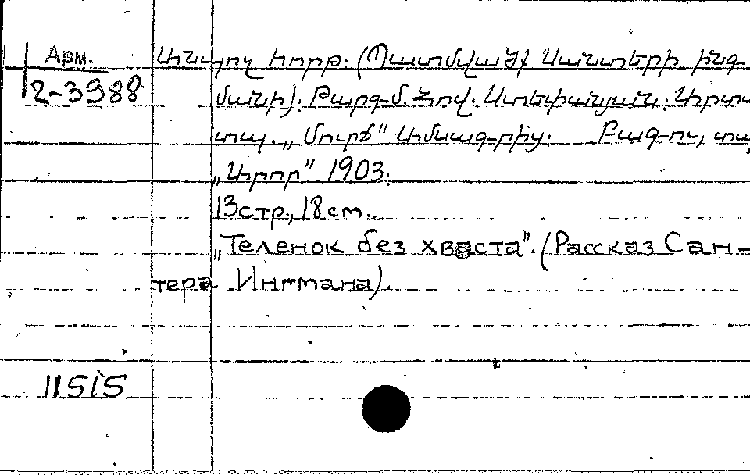 Арм.
2-3388
Անպոչ հորթ. (Պատմված Սանտերի ինգ-
մանի). Թարգմ. Հով. Ստեփանյան. Արտ-
տպ. „Մուրճ" ամսագրից. Բագու, տպ.
„Արոր" 1903.
13стр., 18см.
„Теленок без хваста". (Рассказ Сан-
тера Ингмана).
11515